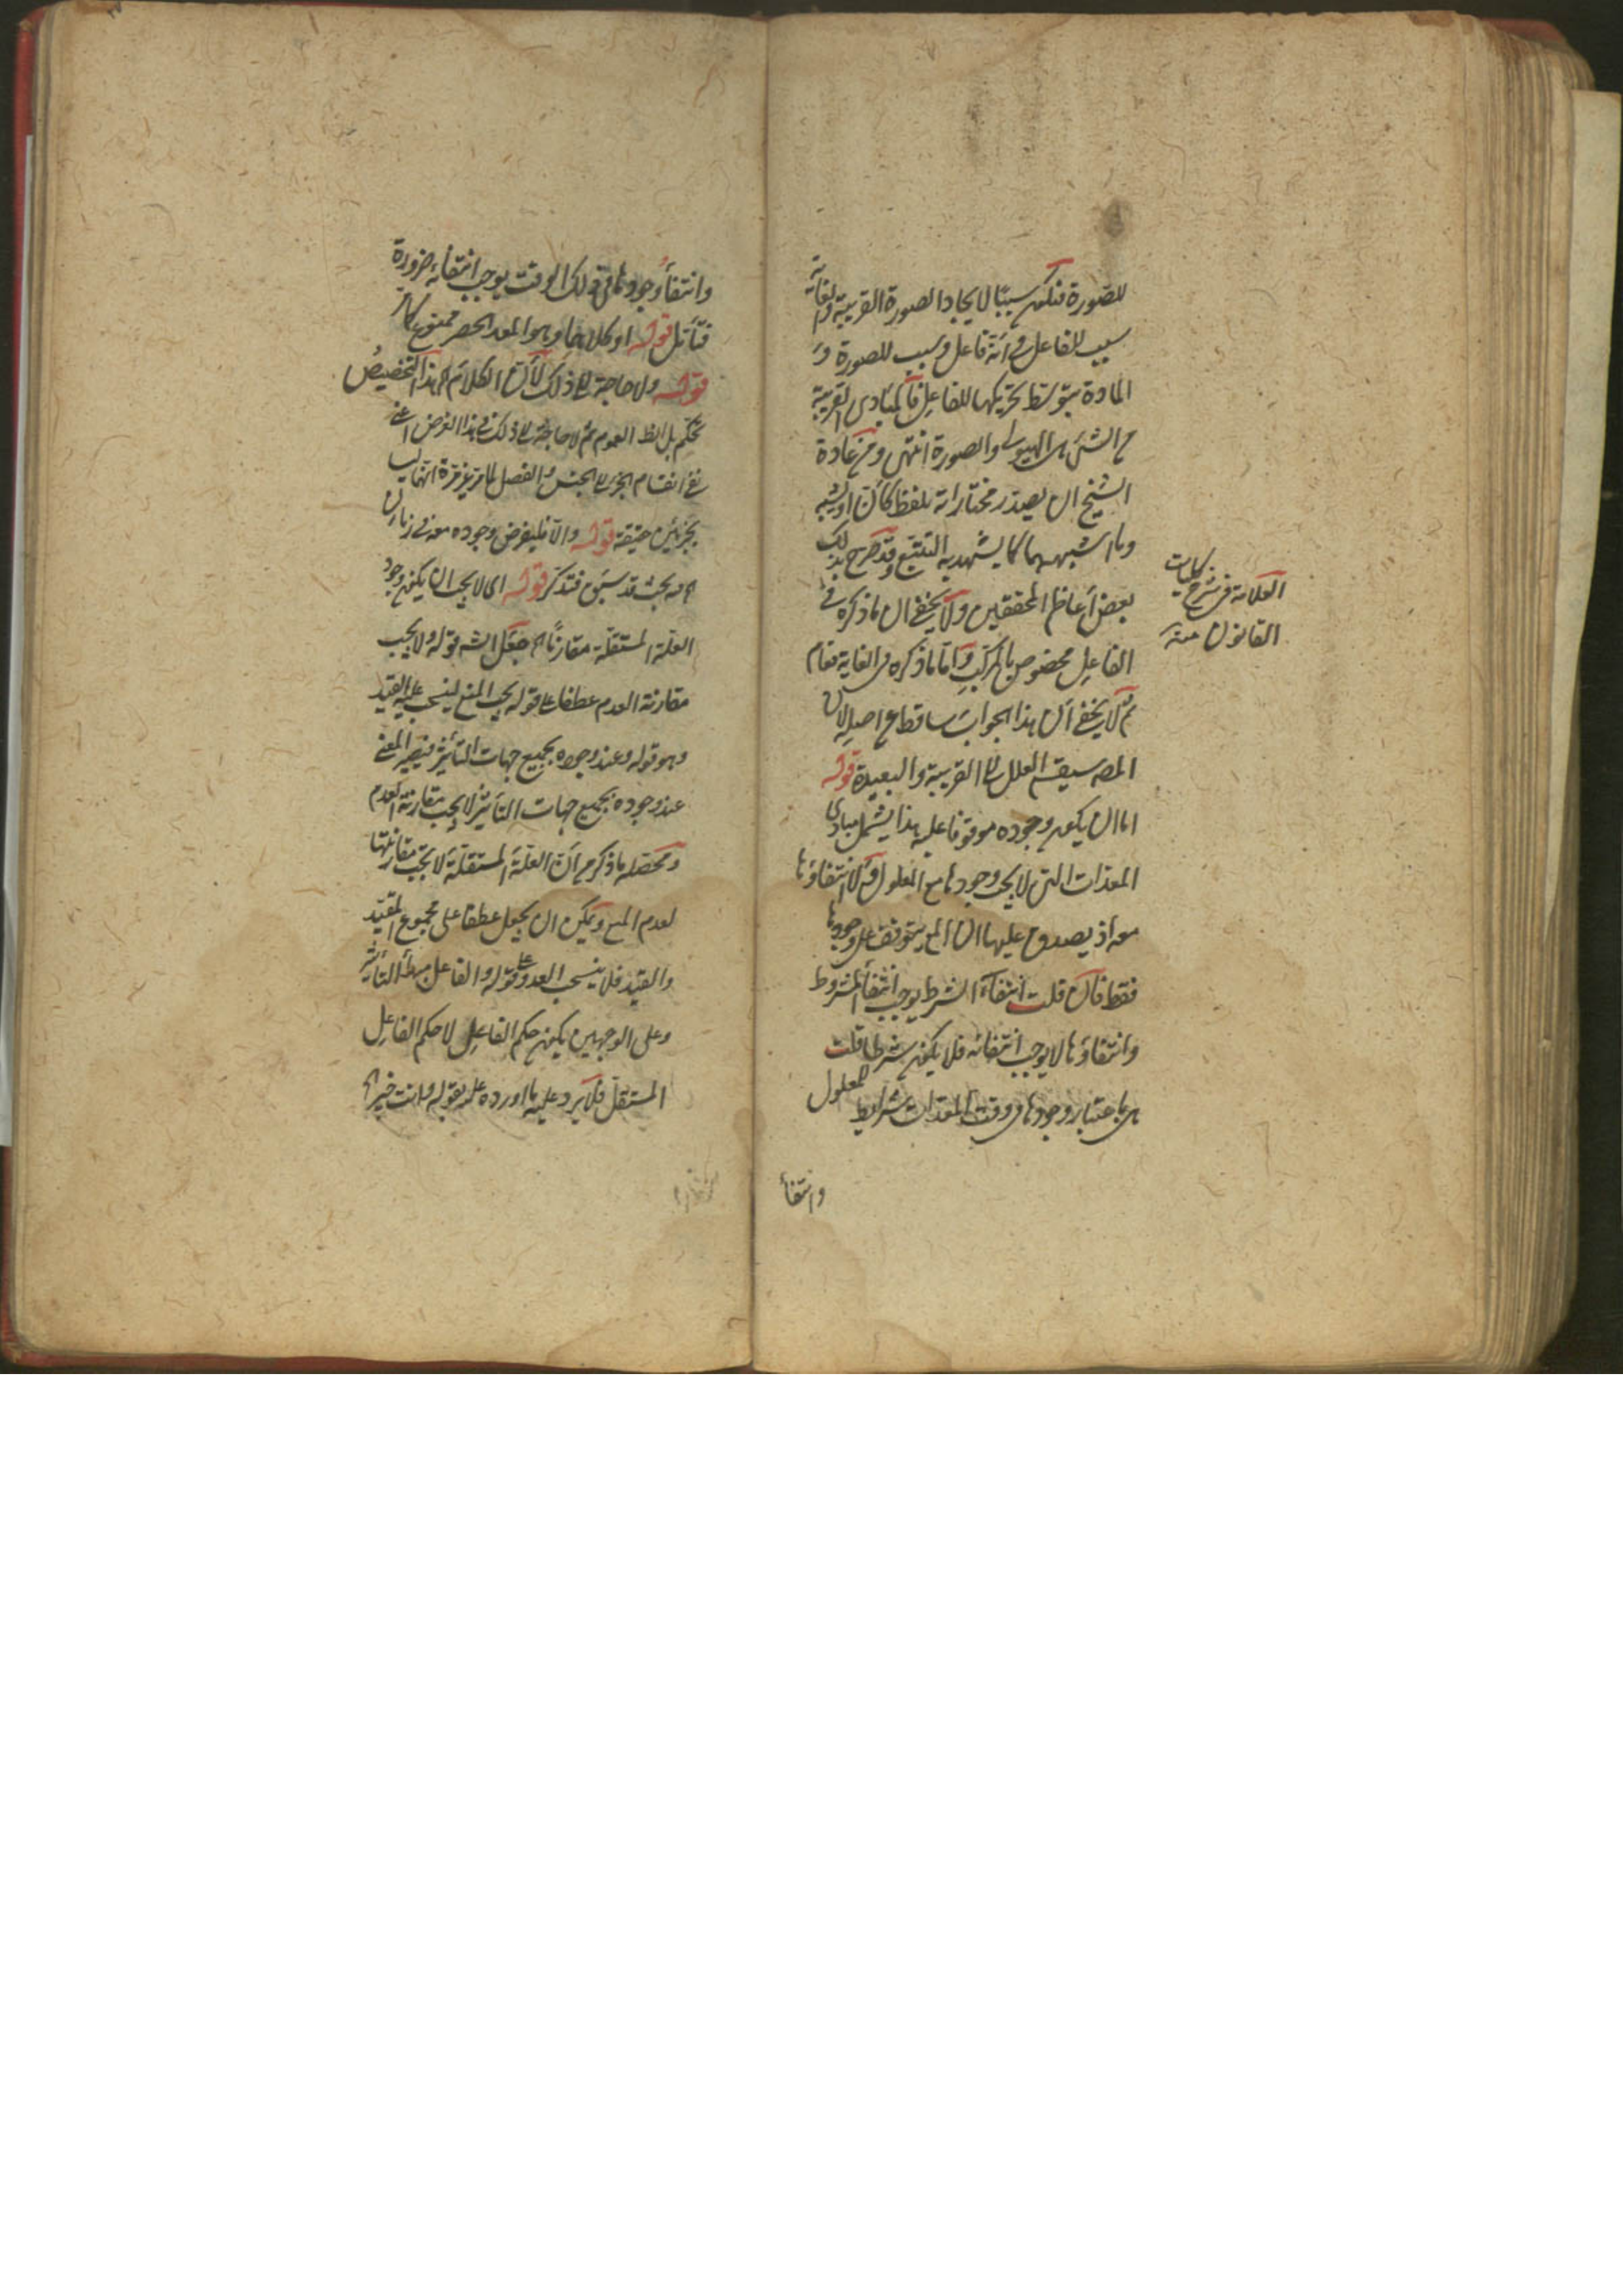 للصورة فتكون سببا لايجاد الصورة القريبة والغاية
سبب للفاعل في انه فاعل وسبب للصورة و
المادة بتوسط تحريكها للفاعل فالمبادي القريبة
من الشئ هي الهيولى والصورة انتهى ومن عادة
الشيخ ان يصدر مختاراته بلفظ كأن او يشبه
وما اشبههما كما يشهد به التتبع وقد صرح بذلك
بعض أعاظم المحققين ولا يخفى ان ما ذكره في
الفاعل مخصوص بالمركب واما ما ذكره في الغاية فعام
ثم لا يخفى ان هذا الجواب ساقط عن اصله لان
المصه سيقسم العلل الى القريبة والبعيدة قوله
اما ان يكون وجوده موقوفا عليه هذا يشمل مبادي
المعدات التي لا يجب وجودها مع المعلول ولا انتفاؤها
معه اذ يصدق عليها ان المع يتوقف على وجودها
فقط فان قلت انتفاء الشرط يوجب انتفاء المشروط
وانتفاؤها لا يوجب انتفائه فلا يكون شرطا قلت
هي باعتبار وجودها في وقت المعدات شرايط للمعلول
وانتفاء
العلامة في شرح كليات
القانون منه
وانتفاء وجودها في ذلك الوقت يوجب انتفائه ضرورة
فتأمل قوله او كلاهما وهو المعد الحصر ممنوع
قوله ولا حاجة الى ذلك لان الكلام هذا التخصيص
تحكم بل الظ العموم ثم لا حاجة الى ذلك في هذا الغرض اعني
نفي انقسام الجزء الى الجنس والفصل لما مر غير مرة انهما ليسا
بجزئين حقيقة قوله والا فليفرض وجوده معه في زمان
اه فيه بحث قد سبق فتذكر قوله اي لا يجب ان يكون وجود
العلة المستقلة مقارنا اه جعل الشه قوله ولا يجب
مقارنة العدم عطفا على قوله يجب المنع لينسحب عليه القيد
وهو قوله وعند وجوده بجميع جهات التأثير فيصير المعنى
عند وجوده بجميع جهات التأثير لا يجب مقارنة العدم
ومحصله ما ذكره من أن العلة المستقلة لا يجب مقارنتها
لعدم المع ويمكن ان يجعل عطفا على مجموع المقيد
والقيد فلا ينسحب العد على قوله والفاعل مبدأ التأثير
وعلى الوجهين يكون حكم الفاعل لا حكم الفاعل
المستقل فلا يرد عليه ما اورده عليه بقوله وانت خبير اه